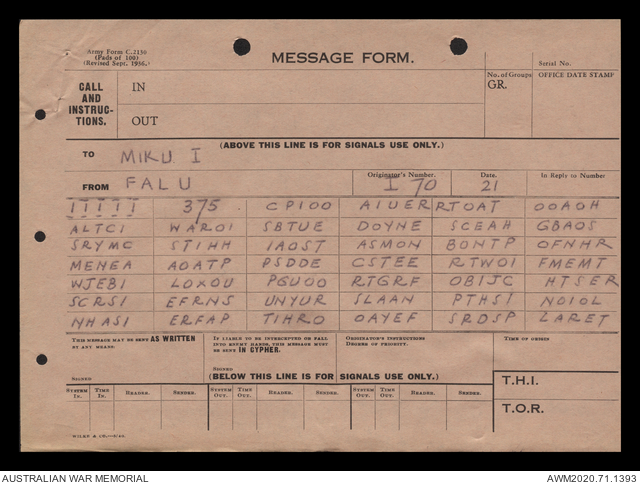 Army Form C.2136
(Pads of 100)
(Revised Sept. 1936.)
MESSAGE FORM.
Serial No.
CALL AND INSTRUC-TIONS.
IN
OUT
No. of Groups
GR.
OFFICE DATE STAMP
(ABOVE THIS LINE IS FOR SIGNALS USE ONLY.)
TO MIKU I
FROM FALU
Originator's Number.
I 70
Date.
21
In Reply to Number
IIIII 375 CP100 AIUER RTOAT OOAOH
ALTCI WAROI SBTUE DOYNE SCEAH GBAOS
SRYMC STIHH IAOST ASMON BONTP OFNHR
MENEA AOATP PSDDE CSTEE RTWOI FMEMT
WJEBI LOXOU PGUOO RTGRF OBIJC HTSER
SCRSI EFRNS UNYUR SLAAN PTHSI NOIOL
NHASI ERFAP TIHRO OAYEF SRDSP LARET
THIS MESSAGE MAY BE SENT AS WRITTEN BY ANY MEANS.
IF LIABLE TO BE INTERCEPTED OR FALL INTO ENEMY HANDS, THIS MESSAGE MUST BE SENT IN CYPHER.
ORIGINATOR'S INSTRUCTIONS
DEGREE OF PRIORITY.
TIME OF ORIGIN
SIGNED
SIGNED
(BELOW THIS LINE IS FOR SIGNALS USE ONLY.)
SYSTEM IN. TIME IN. READER. SENDER. SYSTEM OUT. TIME OUT. READER. SENDER. SYSTEM OUT. TIME OUT. READER. SENDER.
T.H.I.
T.O.R.
AUSTRALIAN WAR MEMORIAL
AWM2020.71.1393